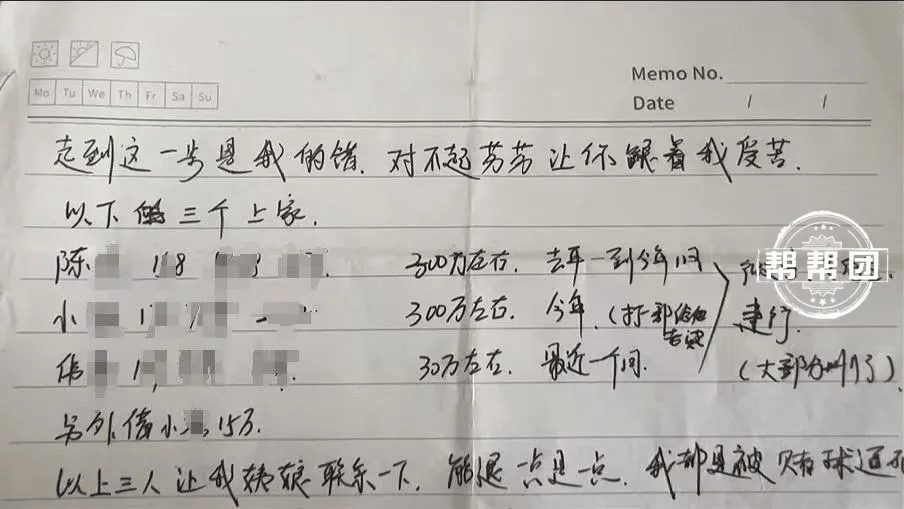 Memo No.
Mo Tu We Th Fr Sa Su
Date / /
走到这一步是我的错.对不起芳芳让你跟着我受苦.
以下 三个上家.
陈 118 300万左右. 去年一到今年间
小 1 300万左右. 今年.(打 建行.
伟 1 30万左右. 最近一个月. (大部分 了)
另外借小 15万.
以上三人让我姨娘联系一下.能退一点是一点.我都是被赌球逼
帮帮团